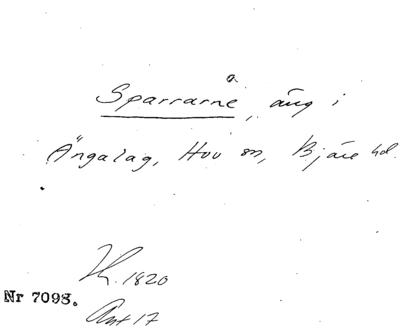 Sparrarne, äng i
Ängalag, Hov sn, Bjäre hd.
1820
Nr 7098.
Ant 17